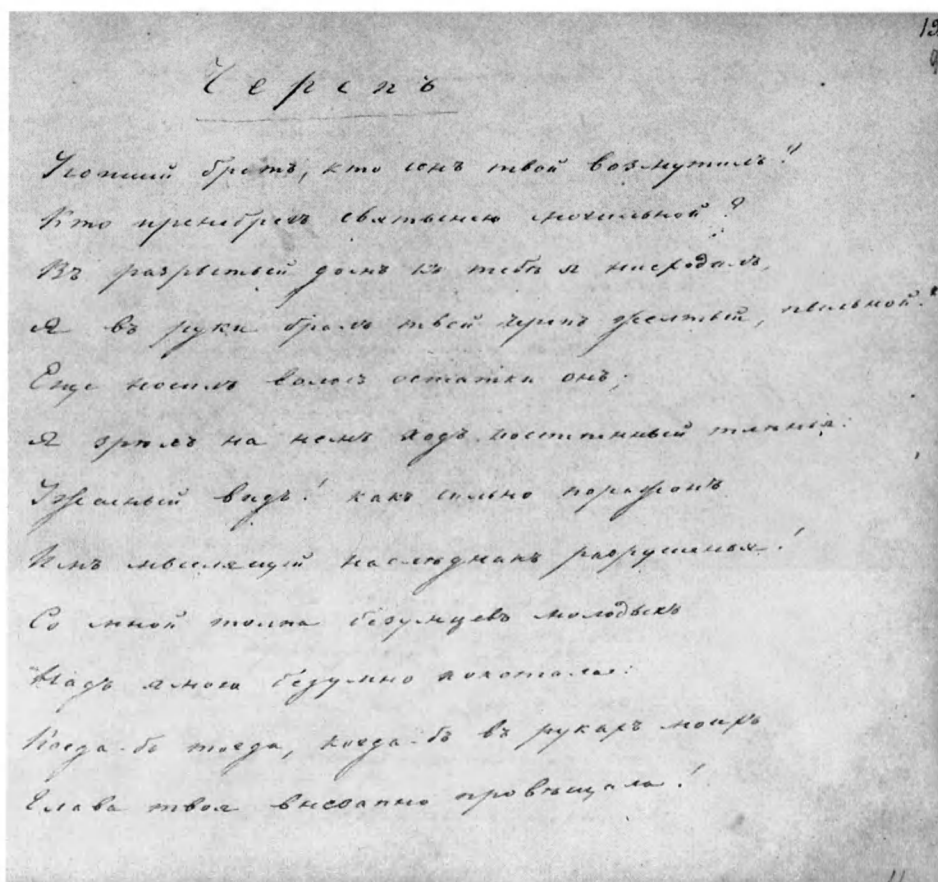 12
Черепъ
Усопшій братъ, кто сонъ твой возмутилъ?
Кто пренебрегъ святынею могильной?
Въ разрытый домъ къ тебѣ я нисходилъ,
Я въ руки бралъ твой черепъ желтый, пыльной.
Еще носилъ волосъ остатки онъ;
Я зрѣлъ на немъ ходъ постепенный тлѣнья:
Ужасный видъ! какъ сильно пораженъ
Имъ мыслящій наслѣдникъ разрушенья!
Со мной толпа безумцевъ молодыхъ
Надъ ямою безумно хохотала:
Когда-бъ тогда, когда-бъ въ рукахъ моихъ
Глава твоя внезапно провѣщала!